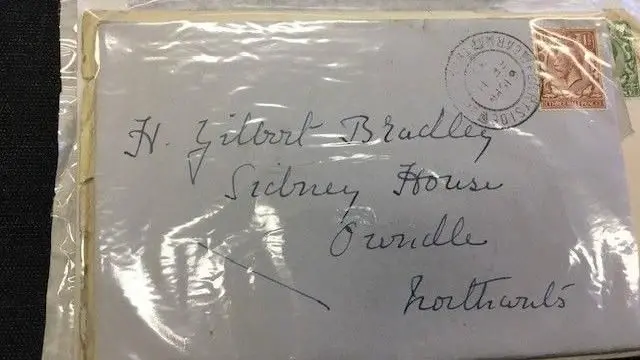 H. Gilbert Bradley
Sidney House
Oundle
Northants
THREE HALF PENCE